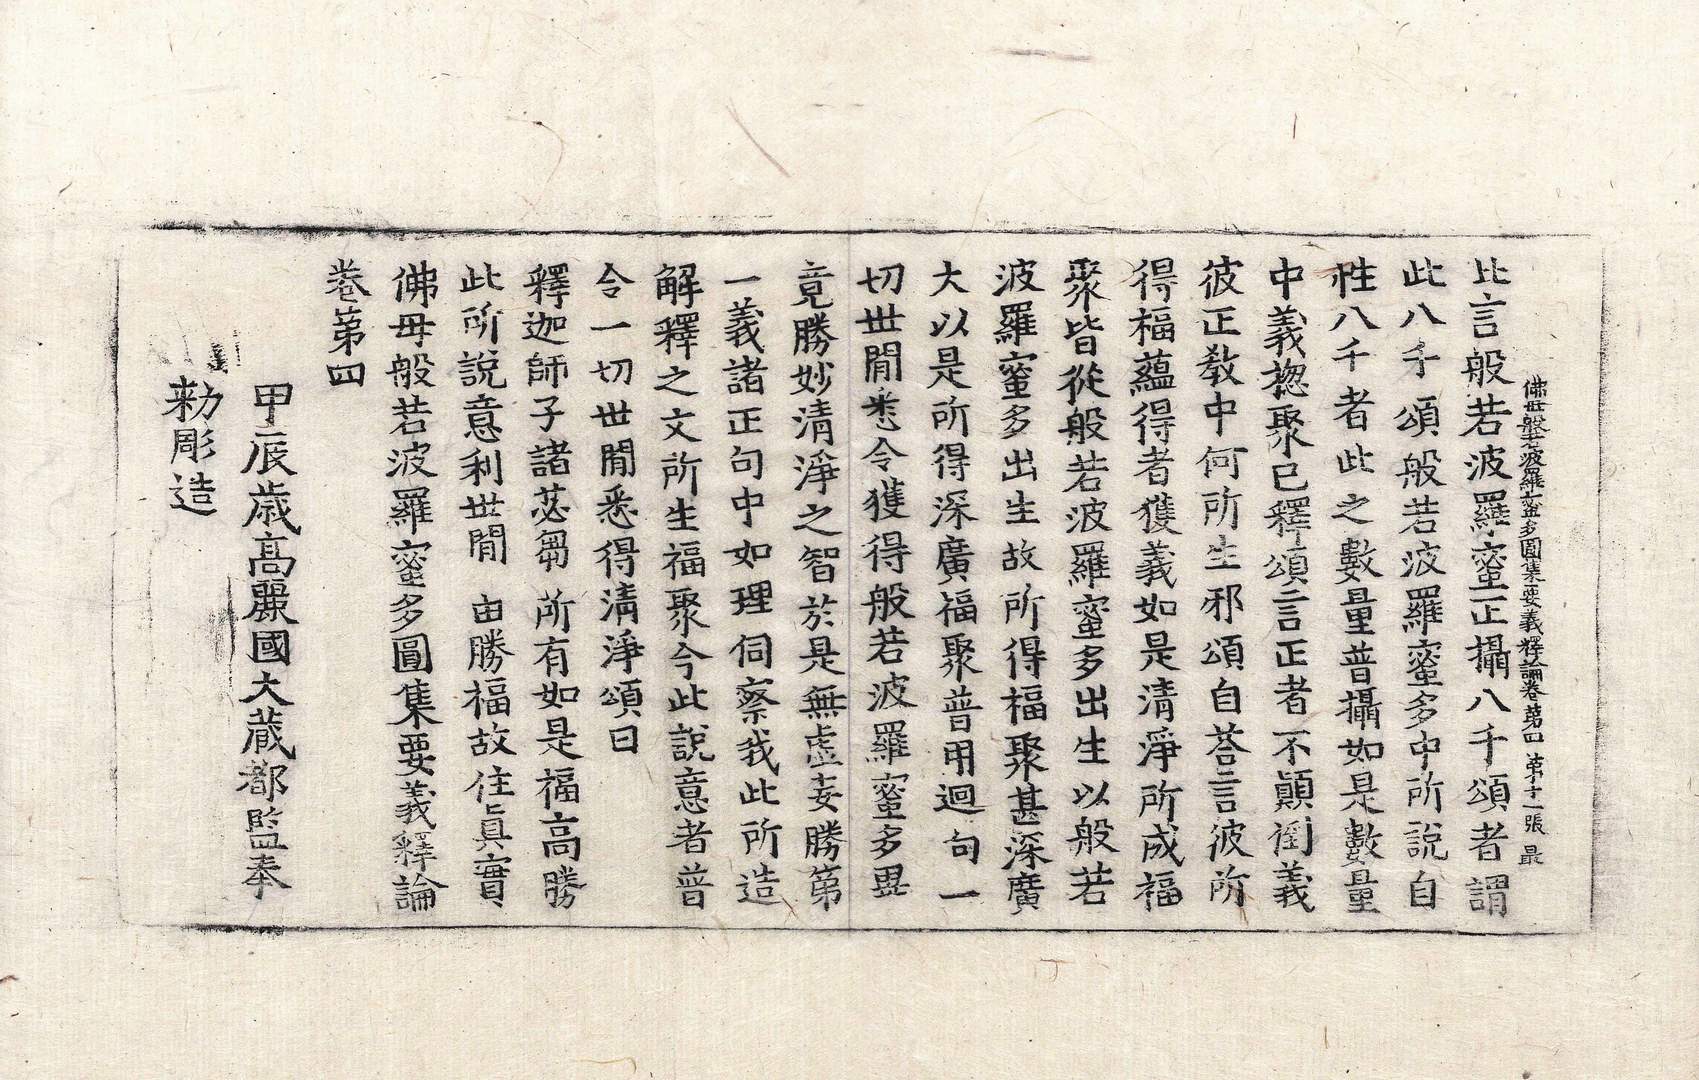 佛母般若波羅蜜多圓集要義釋論卷第四 第十一張 最
此言般若波羅蜜正攝八千頌者謂
此八千頌般若波羅蜜多中所說自
性八千者此之數量普攝如是數量
中義揔聚已釋頌言正者不顚倒義
彼正教中何所生邪頌自荅言彼所
得福蘊得者獲義如是清淨所成福
聚皆從般若波羅蜜多出生以般若
波羅蜜多出生故所得福聚甚深廣
大以是所得深廣福聚普用迴向一
切世閒悉令獲得般若波羅蜜多畢
竟勝妙清淨之智於是無虛妄勝第
一義諸正句中如理伺察我此所造
解釋之文所生福聚今此說意者普
令一切世閒悉得清淨頌曰
釋迦師子諸苾芻 所有如是福高勝
此所說意利世閒 由勝福故住眞實
佛母般若波羅蜜多圓集要義釋論
卷第四
甲辰歲高麗國大藏都監奉
勑彫造